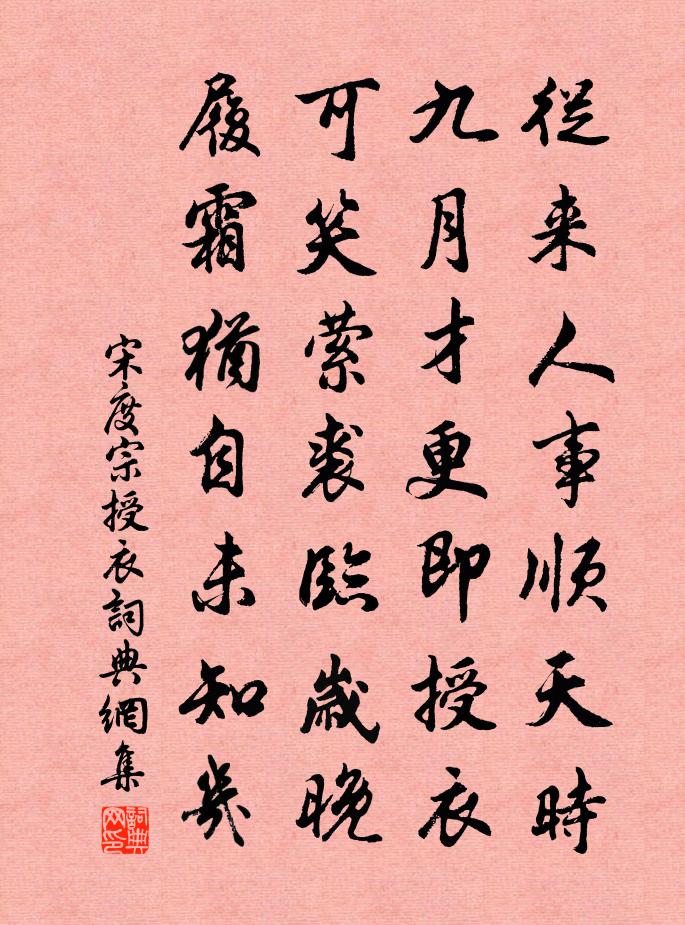 從来人事順天時
九月才更即授衣
可笑縈裘臨歲晚
履霜猶自未知幾
宋度宗授衣詞典網集
詞典网印